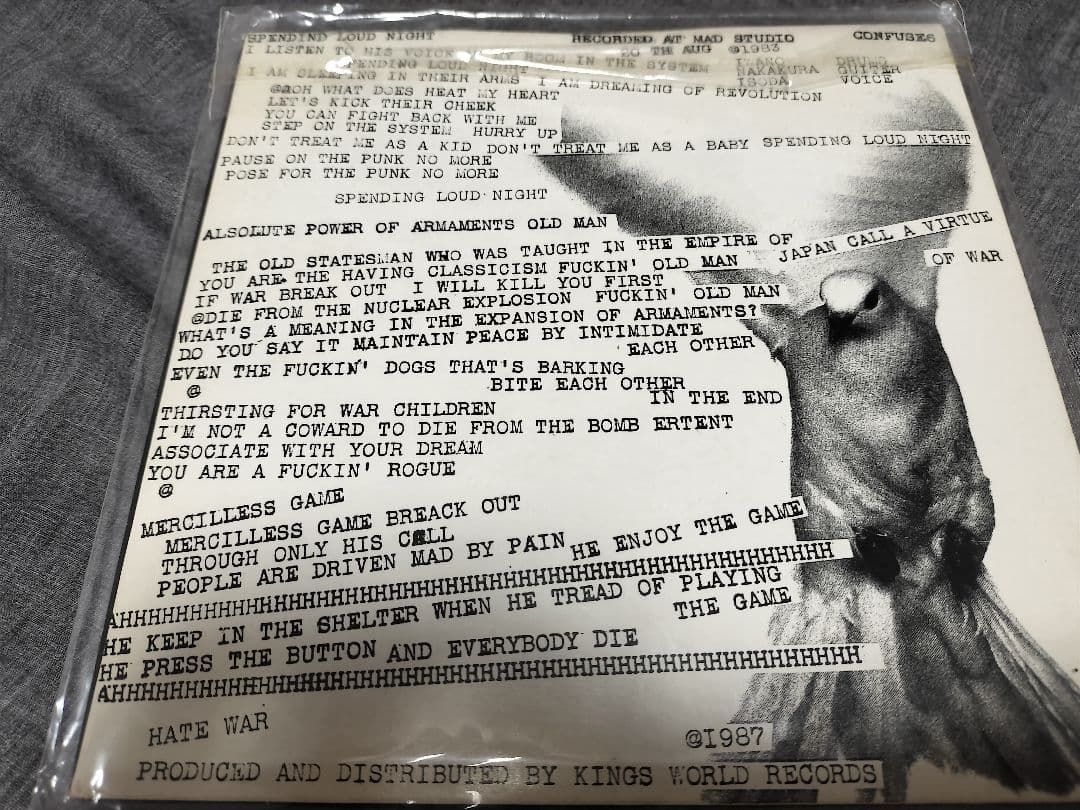 SPENDIND LOUD NIGHT RECORDED AT MAD STUDIO CONFUSE6
I LISTEN TO HIS VOICE IN THE SYSTEM 20 TH AUG @1983
SPENDING LOUD NIGHT NAKAKURA GUITER
I AM SLEEPING IN THEIR ARMS I AM DREAMING OF REVOLUTION ISODA VOICE
@@OH WHAT DOES HEAT MY HEART
LET'S KICK THEIR CHEEK
YOU CAN FIGHT BACK WITH ME
STEP ON THE SYSTEM HURRY UP
DON'T TREAT ME AS A KID DON'T TREAT ME AS A BABY SPENDING LOUD NIGHT
PAUSE ON THE PUNK NO MORE
POSE FOR THE PUNK NO MORE
SPENDING LOUD NIGHT
ALSOLUTE POWER OF ARMAMENTS OLD MAN
THE OLD STATESMAN WHO WAS TAUGHT IN THE EMPIRE OF JAPAN CALL A VIRTUE
OF WAR
YOU ARE THE HAVING CLASSICISM FUCKIN' OLD MAN
IF WAR BREAK OUT I WILL KILL YOU FIRST
@DIE FROM THE NUCLEAR EXPLOSION FUCKIN' OLD MAN
WHAT'S A MEANING IN THE EXPANSION OF ARMAMENTS?
DO YOU SAY IT MAINTAIN PEACE BY INTIMIDATE
EACH OTHER
EVEN THE FUCKIN' DOGS THAT'S BARKING
@ BITE EACH OTHER
IN THE END
THIRSTING FOR WAR CHILDREN
I'M NOT A COWARD TO DIE FROM THE BOMB ERTENT
ASSOCIATE WITH YOUR DREAM
YOU ARE A FUCKIN' ROGUE
@
MERCILLESS GAME
MERCILLESS GAME BREACK OUT
THROUGH ONLY HIS CALL
PEOPLE ARE DRIVEN MAD BY PAIN HE ENJOY THE GAME
AHHHHHHHHHHHHHHHHHHHHHHHHHHHHHHHHHHHHHHHHHHHHHHHHH
HE KEEP IN THE SHELTER WHEN HE TREAD OF PLAYING
THE GAME
HE PRESS THE BUTTON AND EVERYBODY DIE
AHHHHHHHHHHHHHHHHHHHHHHHHHHHHHHHHHHHHHHHHHHHHHHHHHHHH
HATE WAR
@1987
PRODUCED AND DISTRIBUTED BY KINGS WORLD RECORDS